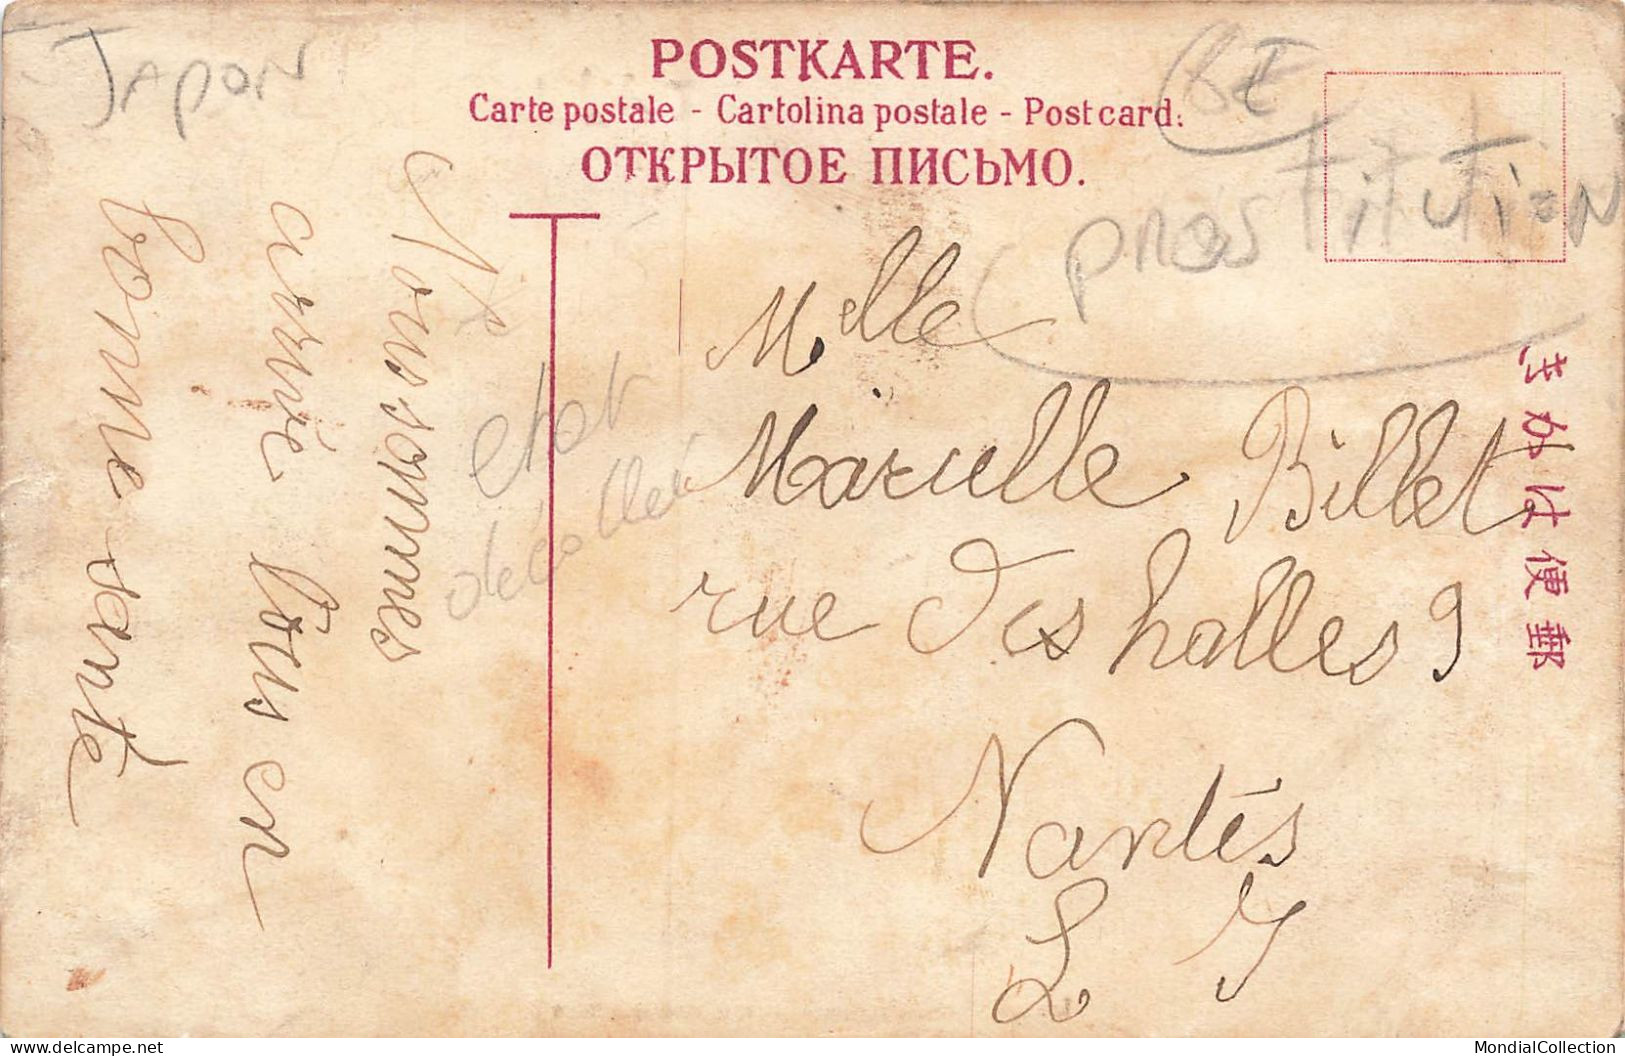 Japon
POSTKARTE.
Carte postale - Cartolina postale - Post card.
ОТКРЫТОЕ ПИСЬМО.
prostitution
きかは便郵
etat
décollée
Nous sommes
arrivé tous en
bonne santé
Melle
Marcelle Billet
rue des halles 9
Nantes
L I
MondialCollection